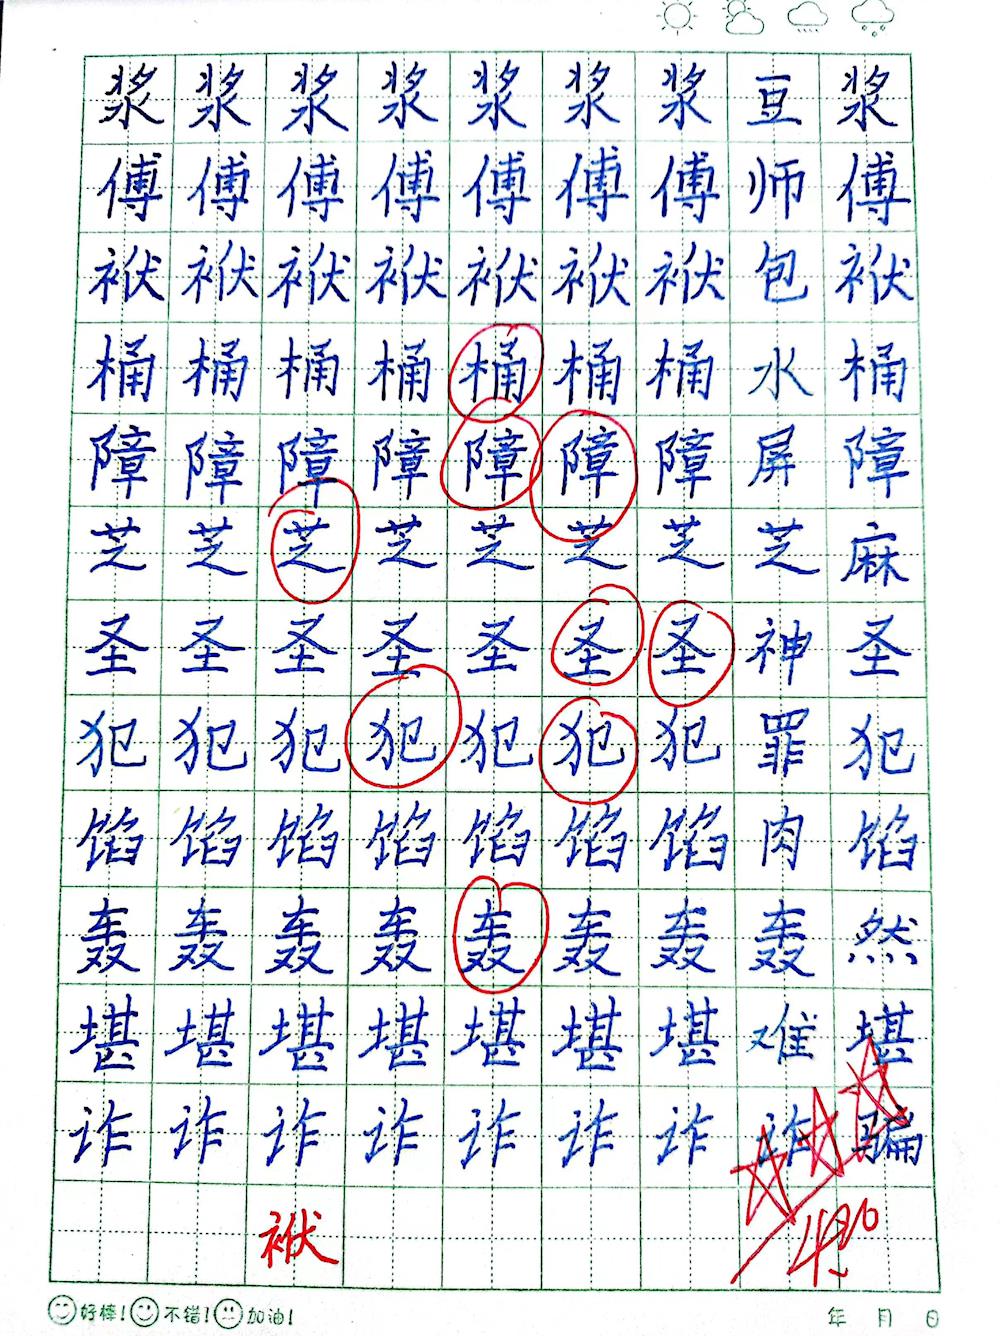 浆浆浆浆浆浆浆豆浆
傅傅傅傅傅傅傅师傅
袱袱袱袱袱袱袱包袱
桶桶桶桶桶桶桶水桶
障障障障障障障屏障
芝芝芝芝芝芝芝芝麻
圣圣圣圣圣圣圣神圣
犯犯犯犯犯犯犯罪犯
馅馅馅馅馅馅馅肉馅
轰轰轰轰轰轰轰轰然
堪堪堪堪堪堪堪难堪
诈诈诈诈诈诈诈诈骗
袱
好棒! 不错! 加油! 年 月 日